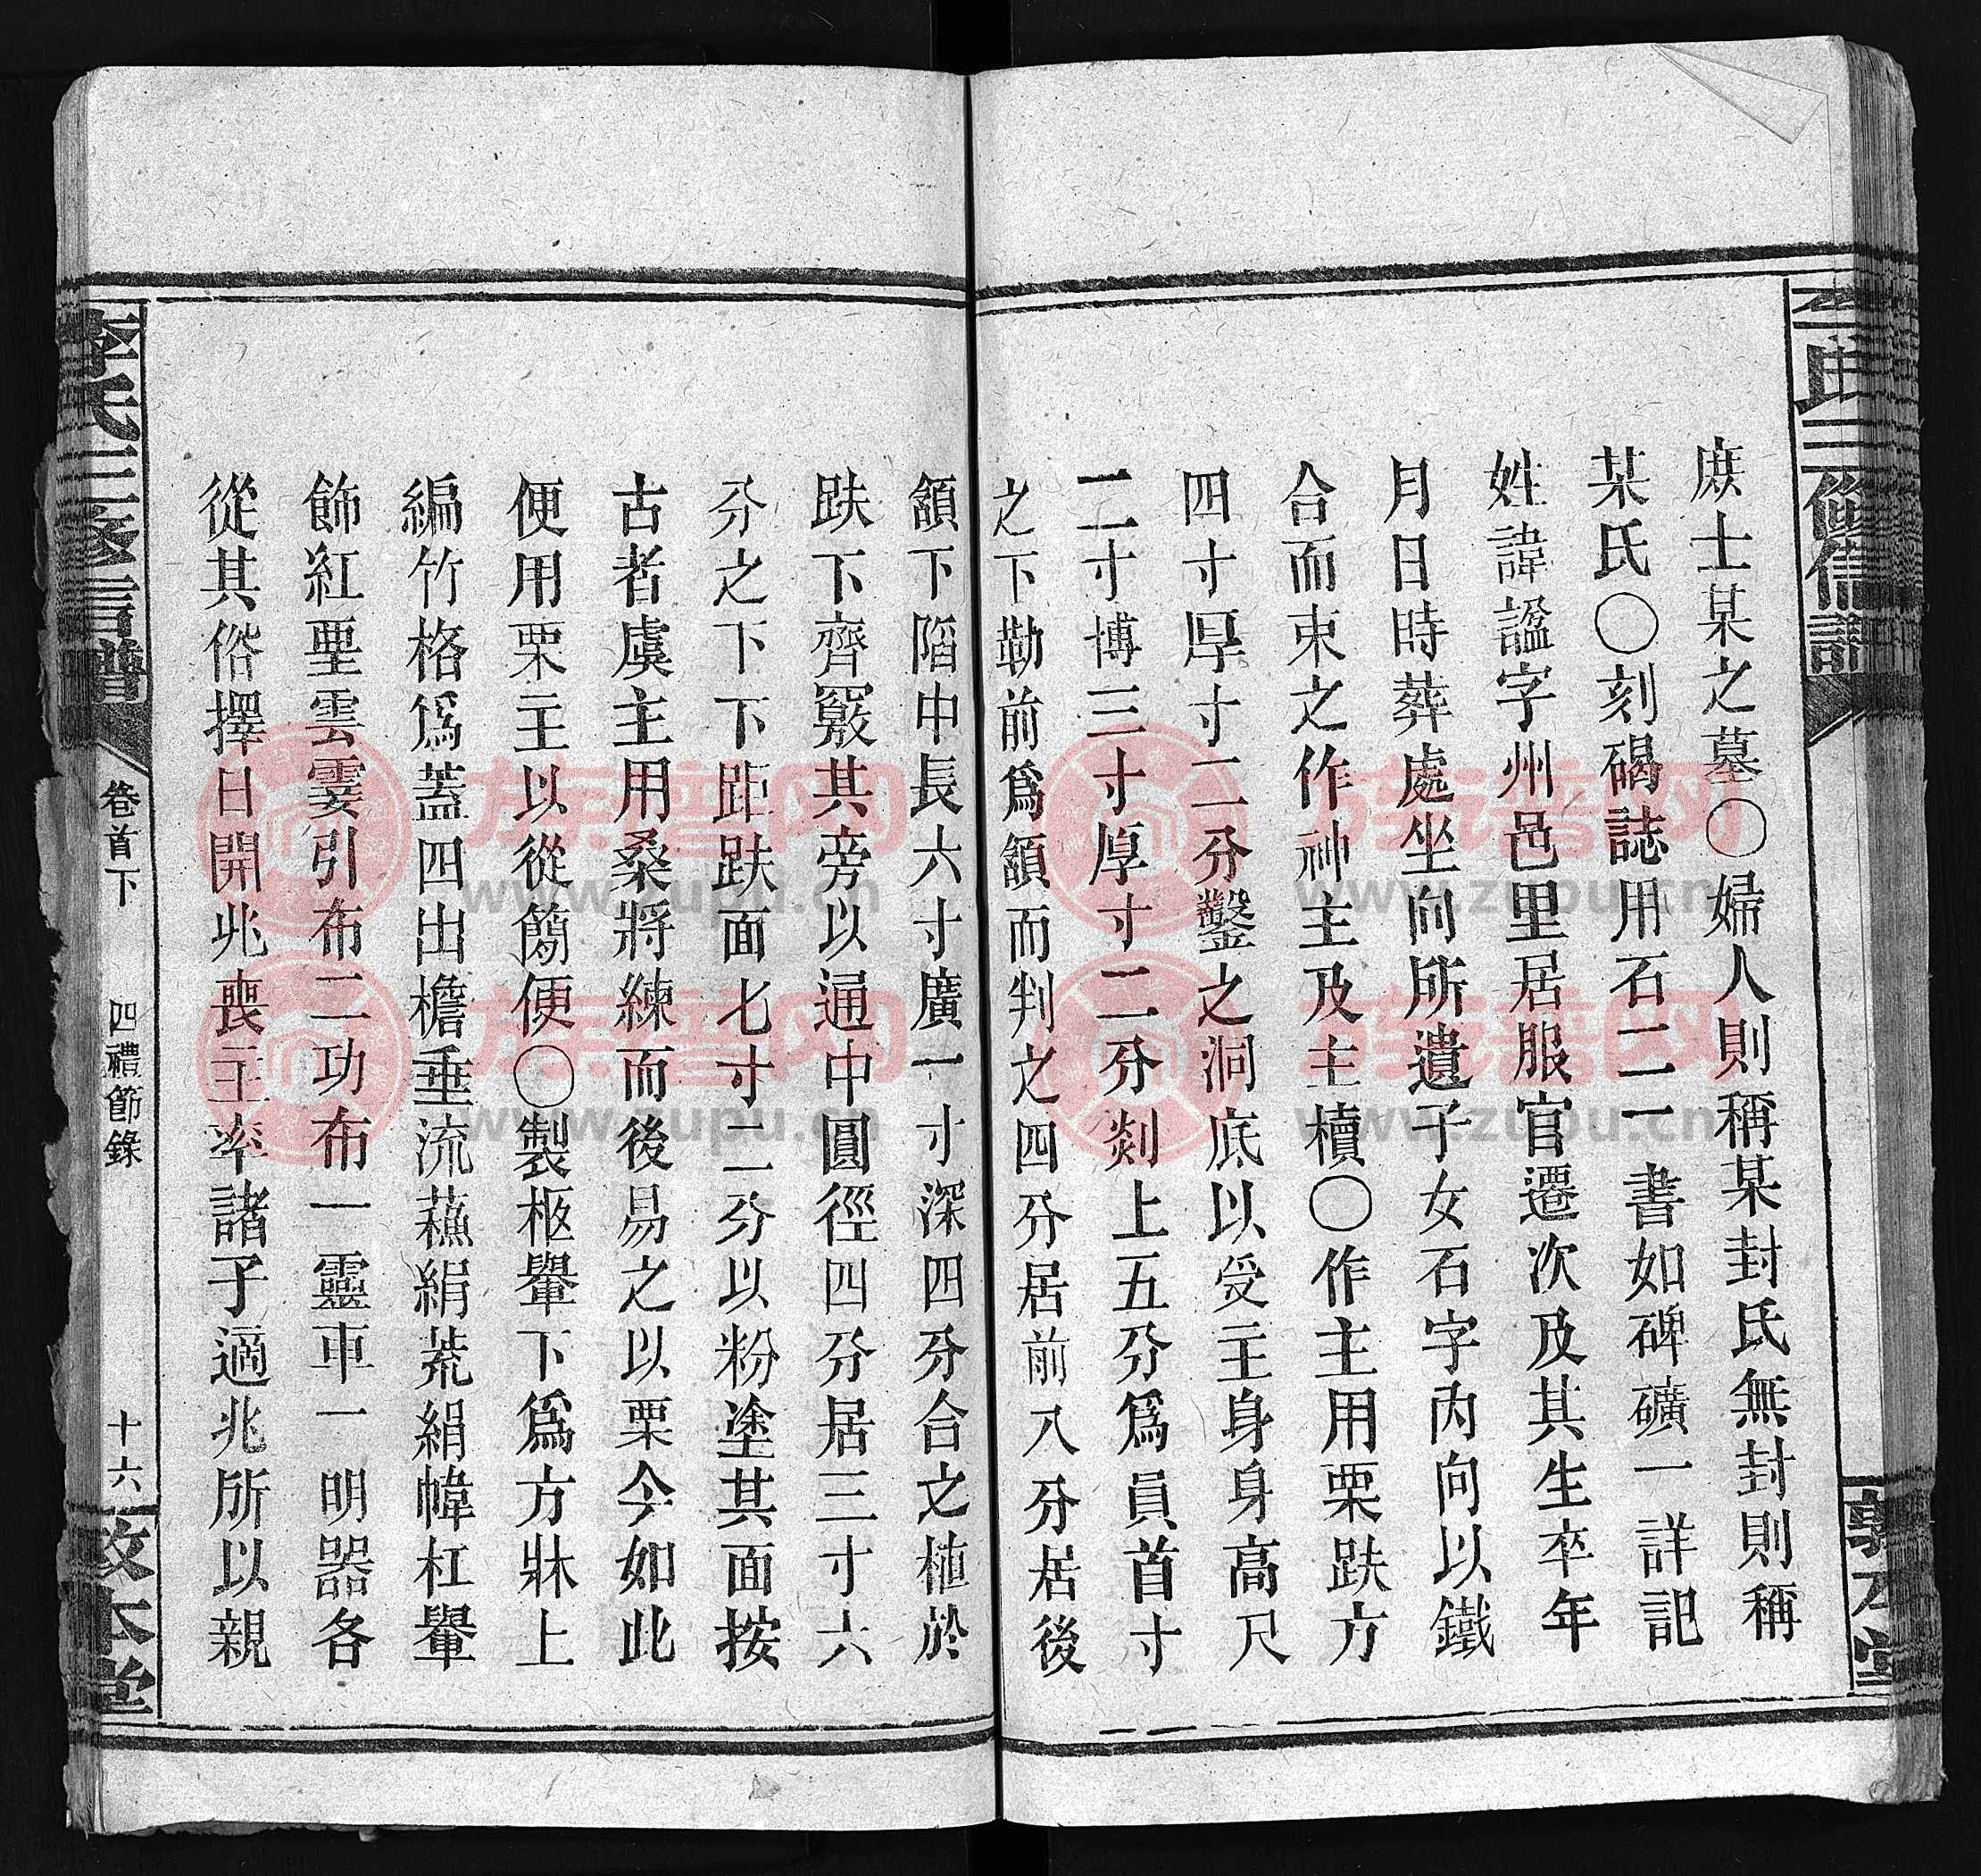 庶士某之墓〇婦人則稱某封氏無封則稱
某氏〇刻碣誌用石二一書如碑礦一詳記
姓諱諡字州邑里居服官遷次及其生卒年
月日時葬處坐向所遺子女石字內向以鐵
合而束之作神主及主櫝〇作主用栗趺方
四寸厚寸二分鑿之洞底以受主身身高尺
二寸博三寸厚寸二分剡上五分爲員首寸
之下勒前爲額而判之四分居前八分居後
額下陷中長六寸廣一寸深四分合之植於
趺下齊竅其旁以通中圓徑四分居三寸六
分之下下距趺面七寸二分以粉塗其面按
古者虞主用桑將練而後易之以栗今如此
便用栗主以從簡便〇製柩轝下爲方牀上
編竹格爲蓋四出檐垂流蘓絹荒絹幃杠轝
飾紅堊雲翣引布二功布一靈車一明器各
從其俗擇日開兆喪主率諸子適兆所以親
李氏三修信譜
卷首下
四禮節錄
十六
敦本堂
族谱网
www.zupu.cn
族谱网
www.zupu.cn
族谱网
www.zupu.cn
族谱网
www.zupu.cn